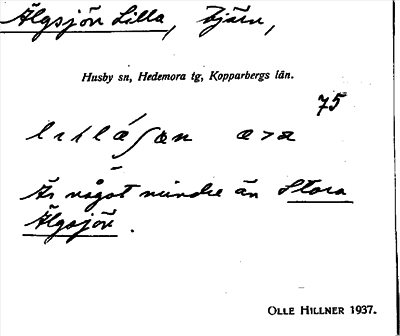 Älgsjön Lilla, tjärn,
Husby sn, Hedemora tg, Kopparbergs län.
75
Är något mindre än Stora
Älgsjön.
OLLE HILLNER 1937.